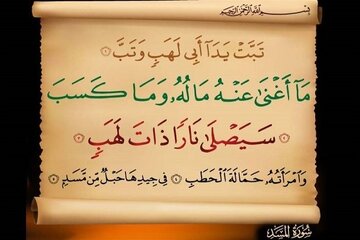 بِسْمِ اللَّهِ الرَّحْمَٰنِ الرَّحِيمِ
تَبَّتْ يَدَآ أَبِى لَهَبٍ وَتَبَّ ١
مَآ أَغْنَىٰ عَنْهُ مَالُهُۥ وَمَا كَسَبَ ٢
سَيَصْلَىٰ نَارًا ذَاتَ لَهَبٍ ٣
وَٱمْرَأَتُهُۥ حَمَّالَةَ ٱلْحَطَبِ ٤ فِى جِيدِهَا حَبْلٌ مِّن مَّسَدٍۭ ٥
سُورَةُ المَسَد